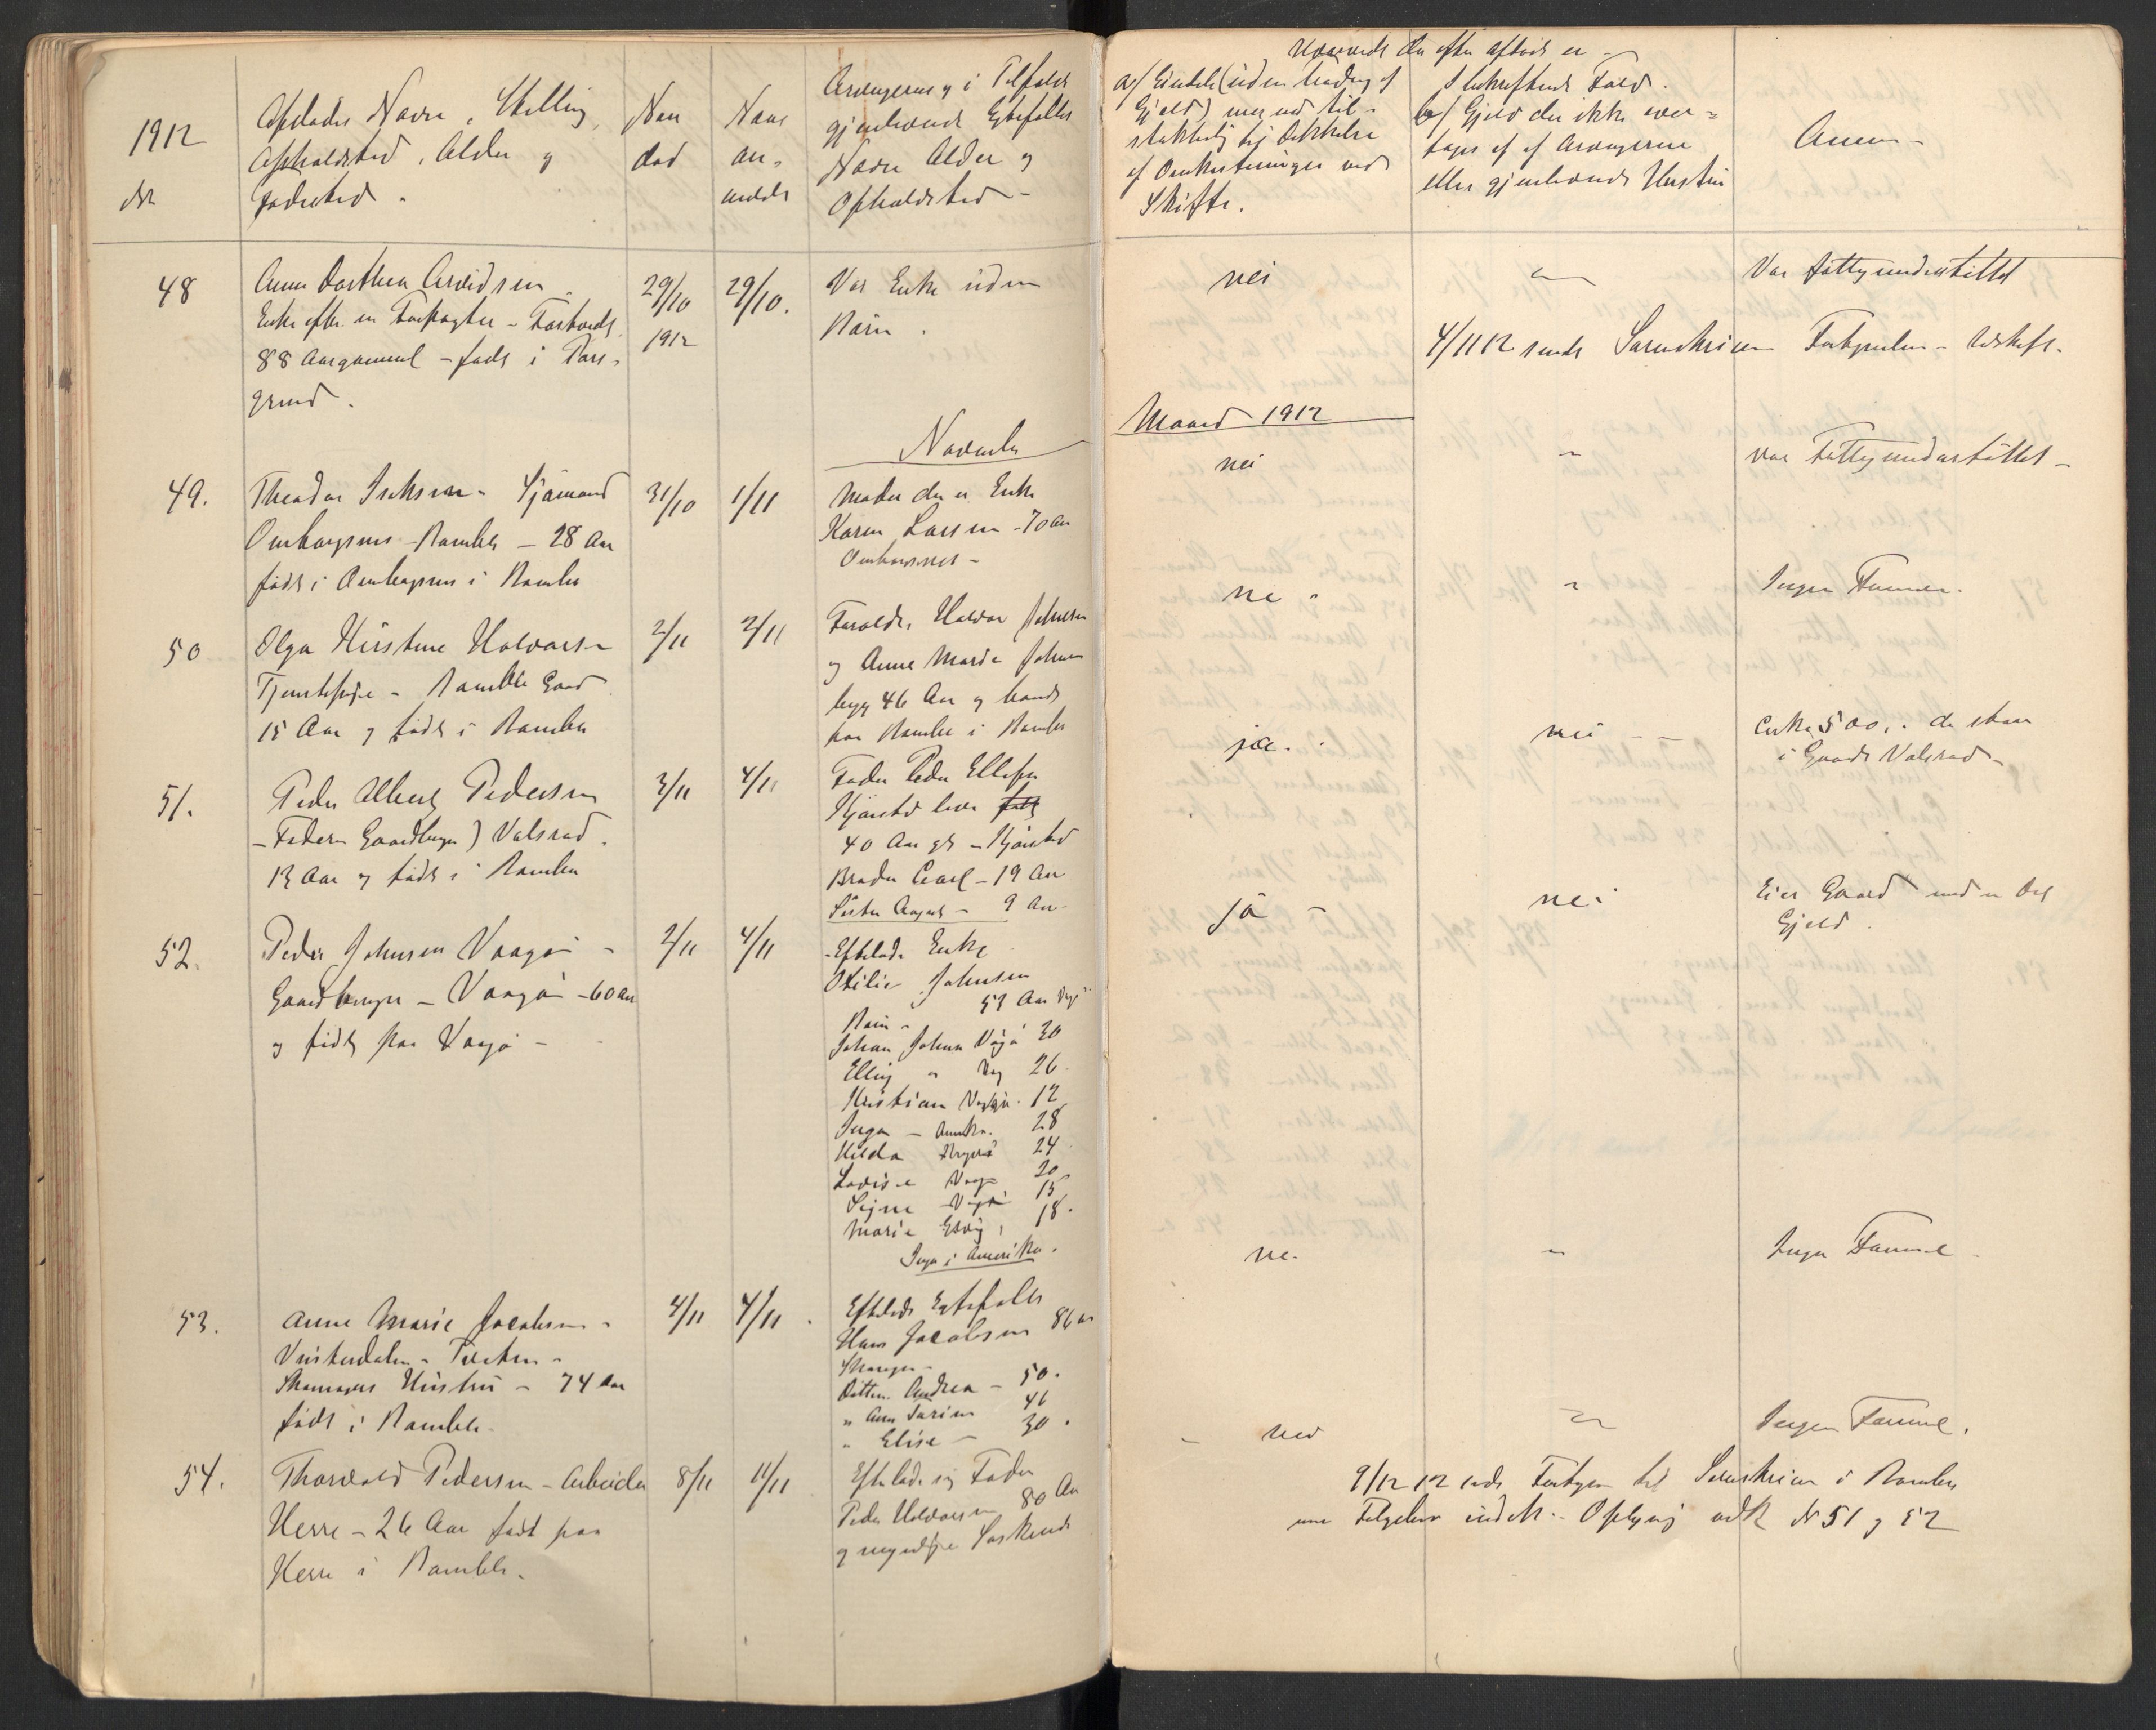 1912
No
Afdødes Navn, Stilling,
Opholdsted, Alder og
Fødested.
Naar
død
Naar
an-
meldt
Arvingerne og i Tilfælde
gjenlevende Egtefælles
Navn Alder og
Opholdsted -
Hvorvidt der efter afdøde er -
a/ Eiendele (uden Fradrag af
Gjæld) mer end til-
strækkelig til Dækkelse
af Omkostninger ved
Skifte.
I bekræftende Fald.
b/ Gjeld der ikke over=
tages af Arvingerne
eller gjenlevende Hustru
Anm -
48
Anne Dorthea Arvidsen
Enke efter en Forpagter -
88 Aar gammel - født i Pors-
grund.
29/10
1912
29/10.
Var Enke uden
Barn.
nei
"
Var fattigunderstøttet
4/11 12 sendt Sorenskriveren Fortegnelsen - Udskrift.
November
Maaned 1912
49.
Theodor Isaksen - Sjømand
Omborgsnes - Bamble - 28 Aar
født i Omborgsnes i Bamble
31/10
1/11
Moder der er Enke
Karen Larsen - 70 Aar
Omborgsnes -
nei
"
var Fattigunderstøttet -
50
Olga Kirstine Halvorsen
Tjenestepige - Bamble Gaard
15 Aar og født i Bamble
2/11
2/11
Forældre Halvor Johnsen
og Anne Marie Johnsen
begge 46 Aar og boende
paa Bamble i Bamble
nei
"
Ingen Formue.
51.
Peder Albert Pedersen
- Faderen Gaardbruger) Valsrad.
13 Aar og født i Bamble
3/11
4/11
Fader Peder Ellefsen
Kjørstad lever født
40 Aar gl - Kjørstad
Broder Carl - 19 Aar
Søster August - 9 Aar
ja.
nei - -
Cirka 500,- der staar
i Gaarde Valsrad -
52.
Peder Johnsen Vaagø -
Gaardbruger - Vaagø - 60 Aar
og født paa Vaagø -
2/11
4/11
Efterlader Enke
Otilie Johnsen
53 Aar
Barn -
Johan Johnsen Vågø 30
Elling " Vag 26.
Kristian Vagø. 12
Inga - Amrka. 28
Hilda 24
Lovise Vaagø 20
Signe Vagø 15
Marie 18.
Inga i Amerika.
ja -
nei
Eier Gaard med en Del
Gjeld.
53.
Anne Marie Jacobsen -
Skomagers Hustru - 74 Aar
født i Bamble.
4/11
4/11
Efterlader Egtefælle
Hans Jacobsen 86 Aar
Skomager -
Døttre. Andrea - 50.
" Ann Karine 46
" Elise - 30.
nei
"
Ingen Formue
54.
Thorvald Pedersen - Arbeider
Herre - 26 Aar født paa
Herre i Bamble.
8/11
11/11
Efterlader sig Fader
Peder Halvorsen 80 Aar
og myndige Søskende
- nei
"
Ingen Formue.
9/12 12 sendt Fortegn. til Sorenskriveren i Bamble
med Følgebrev indeh. Oplysning vedk No 51 og 52